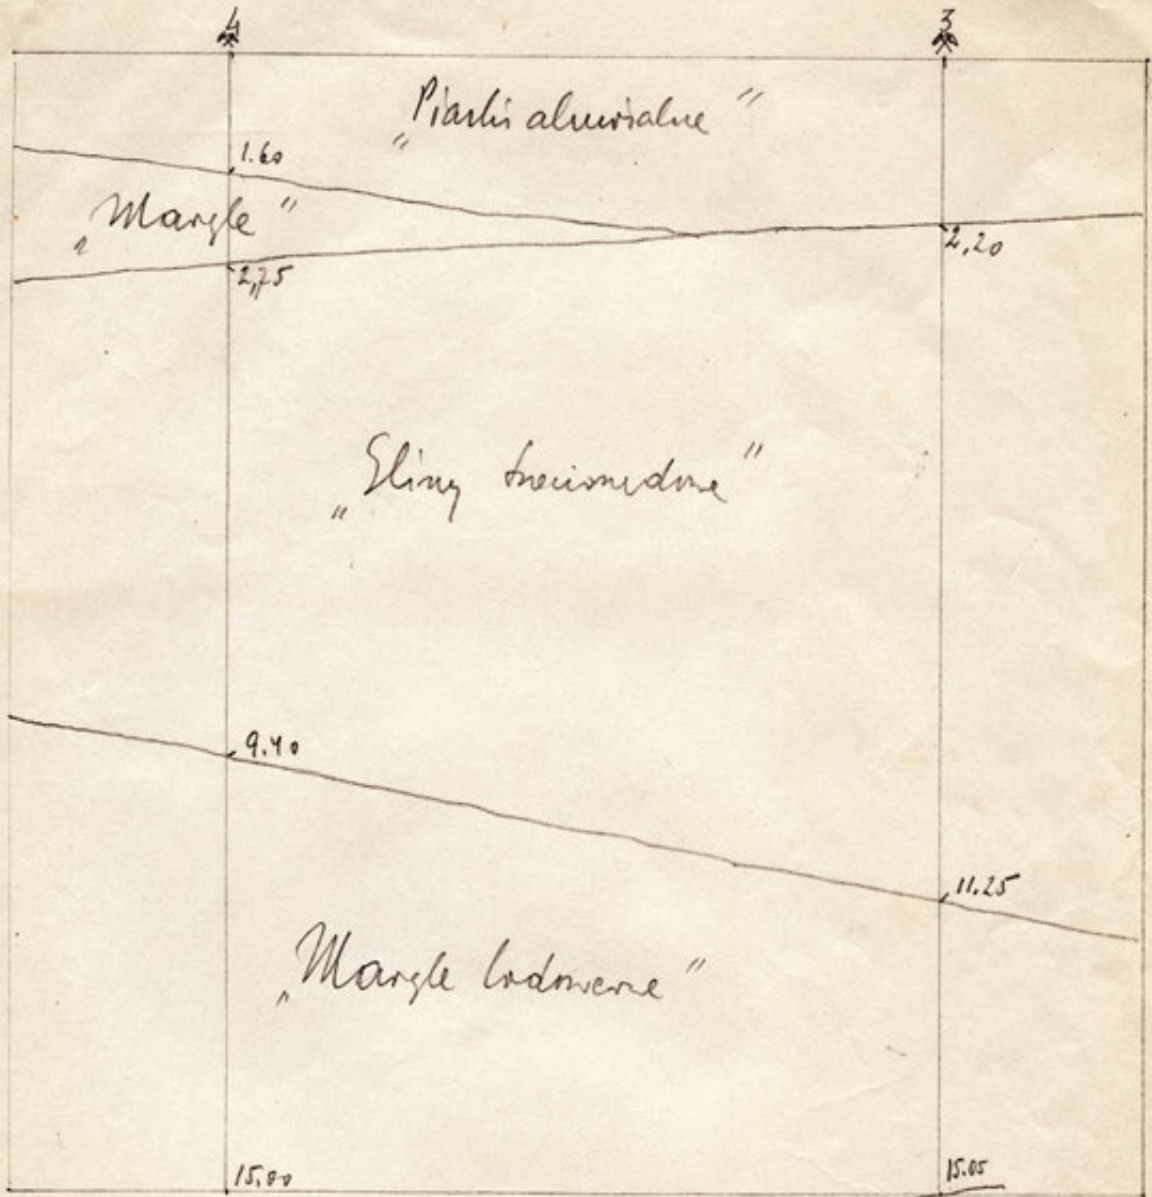 4
3
„Piaski aluwialne"
1.60
„Margle"
2,20
2,75
„Gliny trzeciorzędowe"
9.40
11.25
„Margle lodowcowe"
15,00
15.05